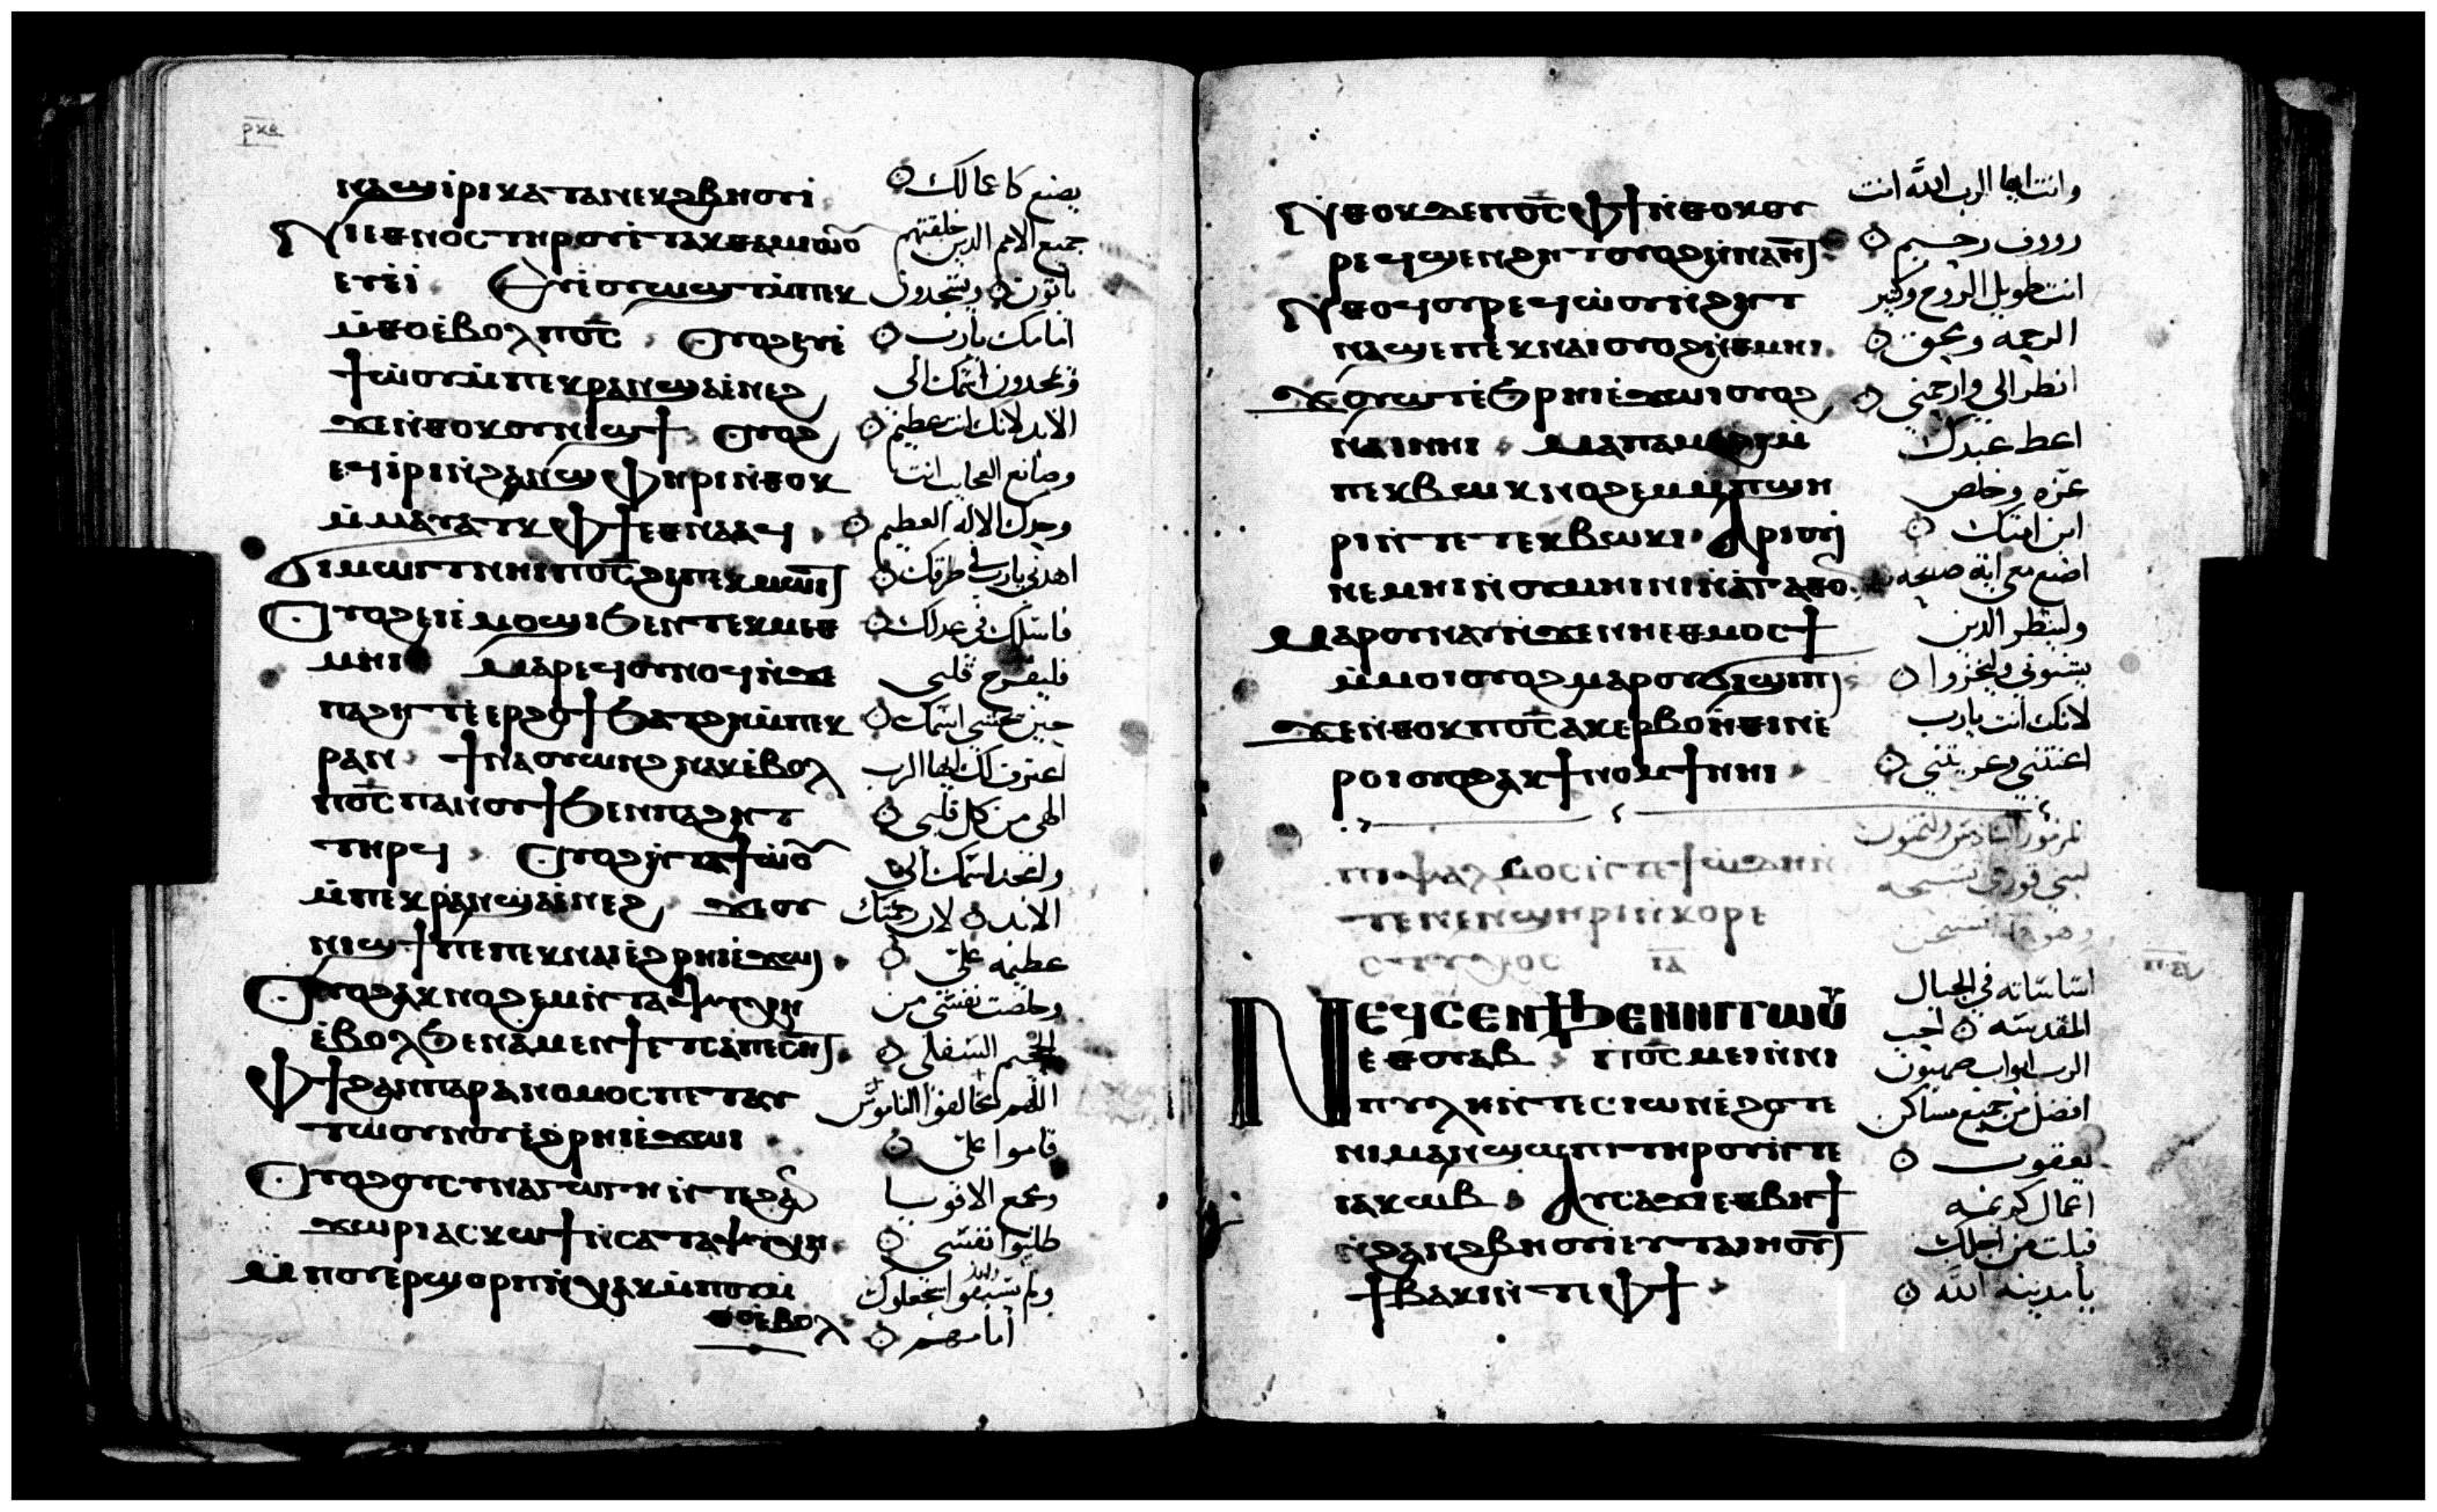 ⲣⲝⲉ
ⲛⲁϣⲓⲣⲓⲕⲁⲧⲁⲛⲉⲕϩⲃⲏⲟⲩⲓ
يصنع كاعمالك
ⲛⲓⲉⲑⲛⲟⲥⲧⲏⲣⲟⲩⲉⲧⲁⲕⲑⲁⲙⲓⲱⲟⲩ
جميع الامم الذين خلقتهم
ⲉⲩⲉ̀ⲓ ⲉⲩⲉ̀ⲟⲩⲱϣⲧⲙ̀ⲡⲉⲕ
ياتون ويسجدون
ⲙ̀ⲑⲟⲉ̀ⲃⲟⲗⲡⲟ̅ⲥ̅ ⲟⲩⲟϩⲉⲩⲉ̀
امامك يارب
ϯⲱ̀ⲟⲩⲙ̀ⲡⲉⲕⲣⲁⲛϣⲁⲉ̀ⲛⲉϩ
ويمجدون اسمك الى
ϫⲉⲛ̀ⲑⲟⲕⲟⲩⲛⲓϣϯ ⲟⲩⲟϩ
الابد لانك انت عظيم
ⲉϥⲓ̀ⲣⲓⲛ̀ϩⲁⲛϣⲫⲏⲣⲓⲛ̀ⲑⲟⲕ
وصانع العجايب انت
ⲙ̀ⲙⲁⲩⲁⲧⲕⲫϯⲉⲑⲛⲁⲁϥ
وحدك الاله العظيم
ϭⲓⲙⲱⲓⲧⲛⲏⲓⲡⲟ̅ⲥ̅ϩⲓⲡⲉⲕⲙⲱⲓⲧ
اهدني يارب في طرقك
ⲟⲩⲟϩⲉⲓⲉ̀ⲙⲟϣⲓϧⲉⲛⲧⲉⲕⲙⲉⲑ
فاسلك في عدلك
ⲙⲏⲓ ⲙⲁⲣⲉϥⲟⲩⲛⲟϥⲛ̀ϫⲉ
فليفرح قلبي
ⲡⲁϩⲏⲧⲉ̀ⲉⲣϩⲟϯϧⲁⲧϩⲏⲙ̀ⲡⲉⲕ
حين يخشى اسمك
ⲣⲁⲛ ϯⲛⲁⲟⲩⲱⲛϩⲛⲁⲕⲉ̀ⲃⲟⲗ
اعترف لك ايها الرب
ⲡⲟ̅ⲥ̅ⲡⲁⲛⲟⲩϯϧⲉⲛⲡⲁϩⲏⲧ
الهي من كل قلبي
ⲧⲏⲣϥ ⲟⲩⲟϩⲛ̀ⲧⲁϯⲱ̀ⲟⲩ
وامجد اسمك الى
ⲙ̀ⲡⲉⲕⲣⲁⲛϣⲁⲉ̀ⲛⲉϩ ϫⲉⲟⲩ
الابد لان رحمتك
ⲛⲓϣϯⲡⲉⲡⲉⲕⲛⲁⲓⲉ̀ϩⲣⲏⲓⲉ̀ϫⲱⲓ
عظيمه علي
ⲟⲩⲟϩⲁⲕⲛⲟϩⲉⲙⲛ̀ⲧⲁⲯⲩⲭⲏ
وخلصت نفسي من
ⲉ̀ⲃⲟⲗϧⲉⲛⲁⲙⲉⲛϯⲉⲧⲥⲁⲡⲉⲥⲏⲧ
الجحيم السفلي
ⲫϯϩⲁⲛⲡⲁⲣⲁⲛⲟⲙⲟⲥⲡⲉⲧⲁⲩ
اللهم مخالفوا الناموس
ⲧⲱⲟⲩⲛⲟⲩⲉ̀ϩⲣⲏⲓⲉ̀ϫⲱⲓ
قاموا علي
ⲟⲩⲟϩⲟⲩⲥⲩⲛⲁⲅⲱⲅⲏⲛ̀ⲧⲉϩⲁⲛ
ومجمع الاقويا
ϫⲱⲣⲓⲁⲥⲕⲱϯⲛ̀ⲥⲁⲧⲁⲯⲩⲭⲏ
طلبوا نفسي
ⲙ̀ⲡⲟⲩⲉⲣϣⲟⲣⲡⲛ̀ⲭⲁⲕⲙ̀ⲡⲟⲩⲙ̀
ولم يسبقوا يجعلوك
ⲑⲟⲉ̀ⲃⲟⲗ
امامهم
ⲛ̀ⲑⲟⲕⲇⲉⲡⲟ̅ⲥ̅ⲫϯⲛ̀ⲑⲟⲕⲟⲩ
وانت ايها الرب الله انت
ⲣⲉϥϣⲉⲛϩⲏⲧⲟⲩⲟϩⲛ̀ⲛⲁⲏⲧ
رووف رحيم
ⲛ̀ⲑⲟϥⲟⲩⲣⲉϥⲱ̀ⲟⲩⲛ̀ϩⲏⲧ
انت طويل الروح وكثير
ⲛⲁϣⲉⲡⲉⲕⲛⲁⲓⲟⲩⲟϩⲛ̀ⲑⲙⲏⲓ
الرحمه ومحق
ϫⲟⲩϣⲧⲉ̀ϧⲣⲏⲓⲉ̀ϫⲱⲓⲟⲩⲟϩ
انظر الي وارحمني
ⲛⲁⲓⲛⲏⲓ ⲙⲁⲡⲁⲙⲁϩⲓⲙ̀
اعط عبدك
ⲡⲉⲕⲃⲱⲕⲛⲟϩⲉⲙⲙ̀ⲡϣⲏ
عزه وخلص
ⲣⲓⲛ̀ⲧⲉⲧⲉⲕⲃⲱⲕⲓ ⲁⲣⲓⲟⲩⲓ̀
ابن امتك
ⲛⲉⲙⲏⲓⲛ̀ⲟⲩⲙⲏⲓⲛⲓⲛ̀ⲁⲅⲁⲑⲟⲛ
اصنع معي ايه صالحه
ⲙⲁⲣⲟⲩⲛⲁⲩⲛ̀ϫⲉⲛⲏⲉⲑⲙⲟⲥϯ
ولينظر الذين
ⲙ̀ⲙⲟⲓⲟⲩⲟϩⲙⲁⲣⲟⲩϭⲓϣⲓⲡⲓ
يشنوني وليخزوا
ϫⲉⲛ̀ⲑⲟⲕⲡⲟ̅ⲥ̅ⲁⲕⲉⲣⲃⲟⲏ̀ⲑⲓⲛⲉ̀
لانك انت يارب
ⲣⲟⲓⲟⲩⲟϩⲁⲕϯⲛⲟⲙϯⲛⲏⲓ
اعنتني وعزيتني
ⲡⲓⲯⲁⲗⲙⲟⲥⲛ̀ⲧⲉϯⲱ̀ⲇⲏⲛ̀
ⲧⲉⲛⲉⲛϣⲏⲣⲓⲛ̀ⲕⲟⲣⲉ
لبني قورح تسبحه
ⲛⲉϥⲥⲉⲛϯϧⲉⲛⲛⲓⲧⲱⲟⲩ
اساساته في الجبال
ⲉⲑⲟⲩⲁⲃ ⲡⲟ̅ⲥ̅ⲙⲉⲓⲛ̀ⲛⲓ
المقدسه احب
ⲡⲩⲗⲏⲛ̀ⲧⲉⲥⲓⲱⲛⲉ̀ϩⲟⲧⲉ
الرب ابواب صهيون
ⲛⲓⲙⲁⲛ̀ϣⲱⲡⲓⲧⲏⲣⲟⲩⲛ̀ⲧⲉ
افضل من جميع مساكن
ⲓⲁⲕⲱⲃ ⲁⲩⲥⲁϫⲓⲉⲑⲃⲏϯ
يعقوب
ⲛ̀ϩⲁⲛϩⲃⲏⲟⲩⲓ̀ⲉⲩⲧⲁⲓⲏⲟⲩⲧ
اعمال كريمه
ϯⲃⲁⲕⲓⲛ̀ⲧⲉⲫϯ
قيلت من اجلك
يامدينه الله